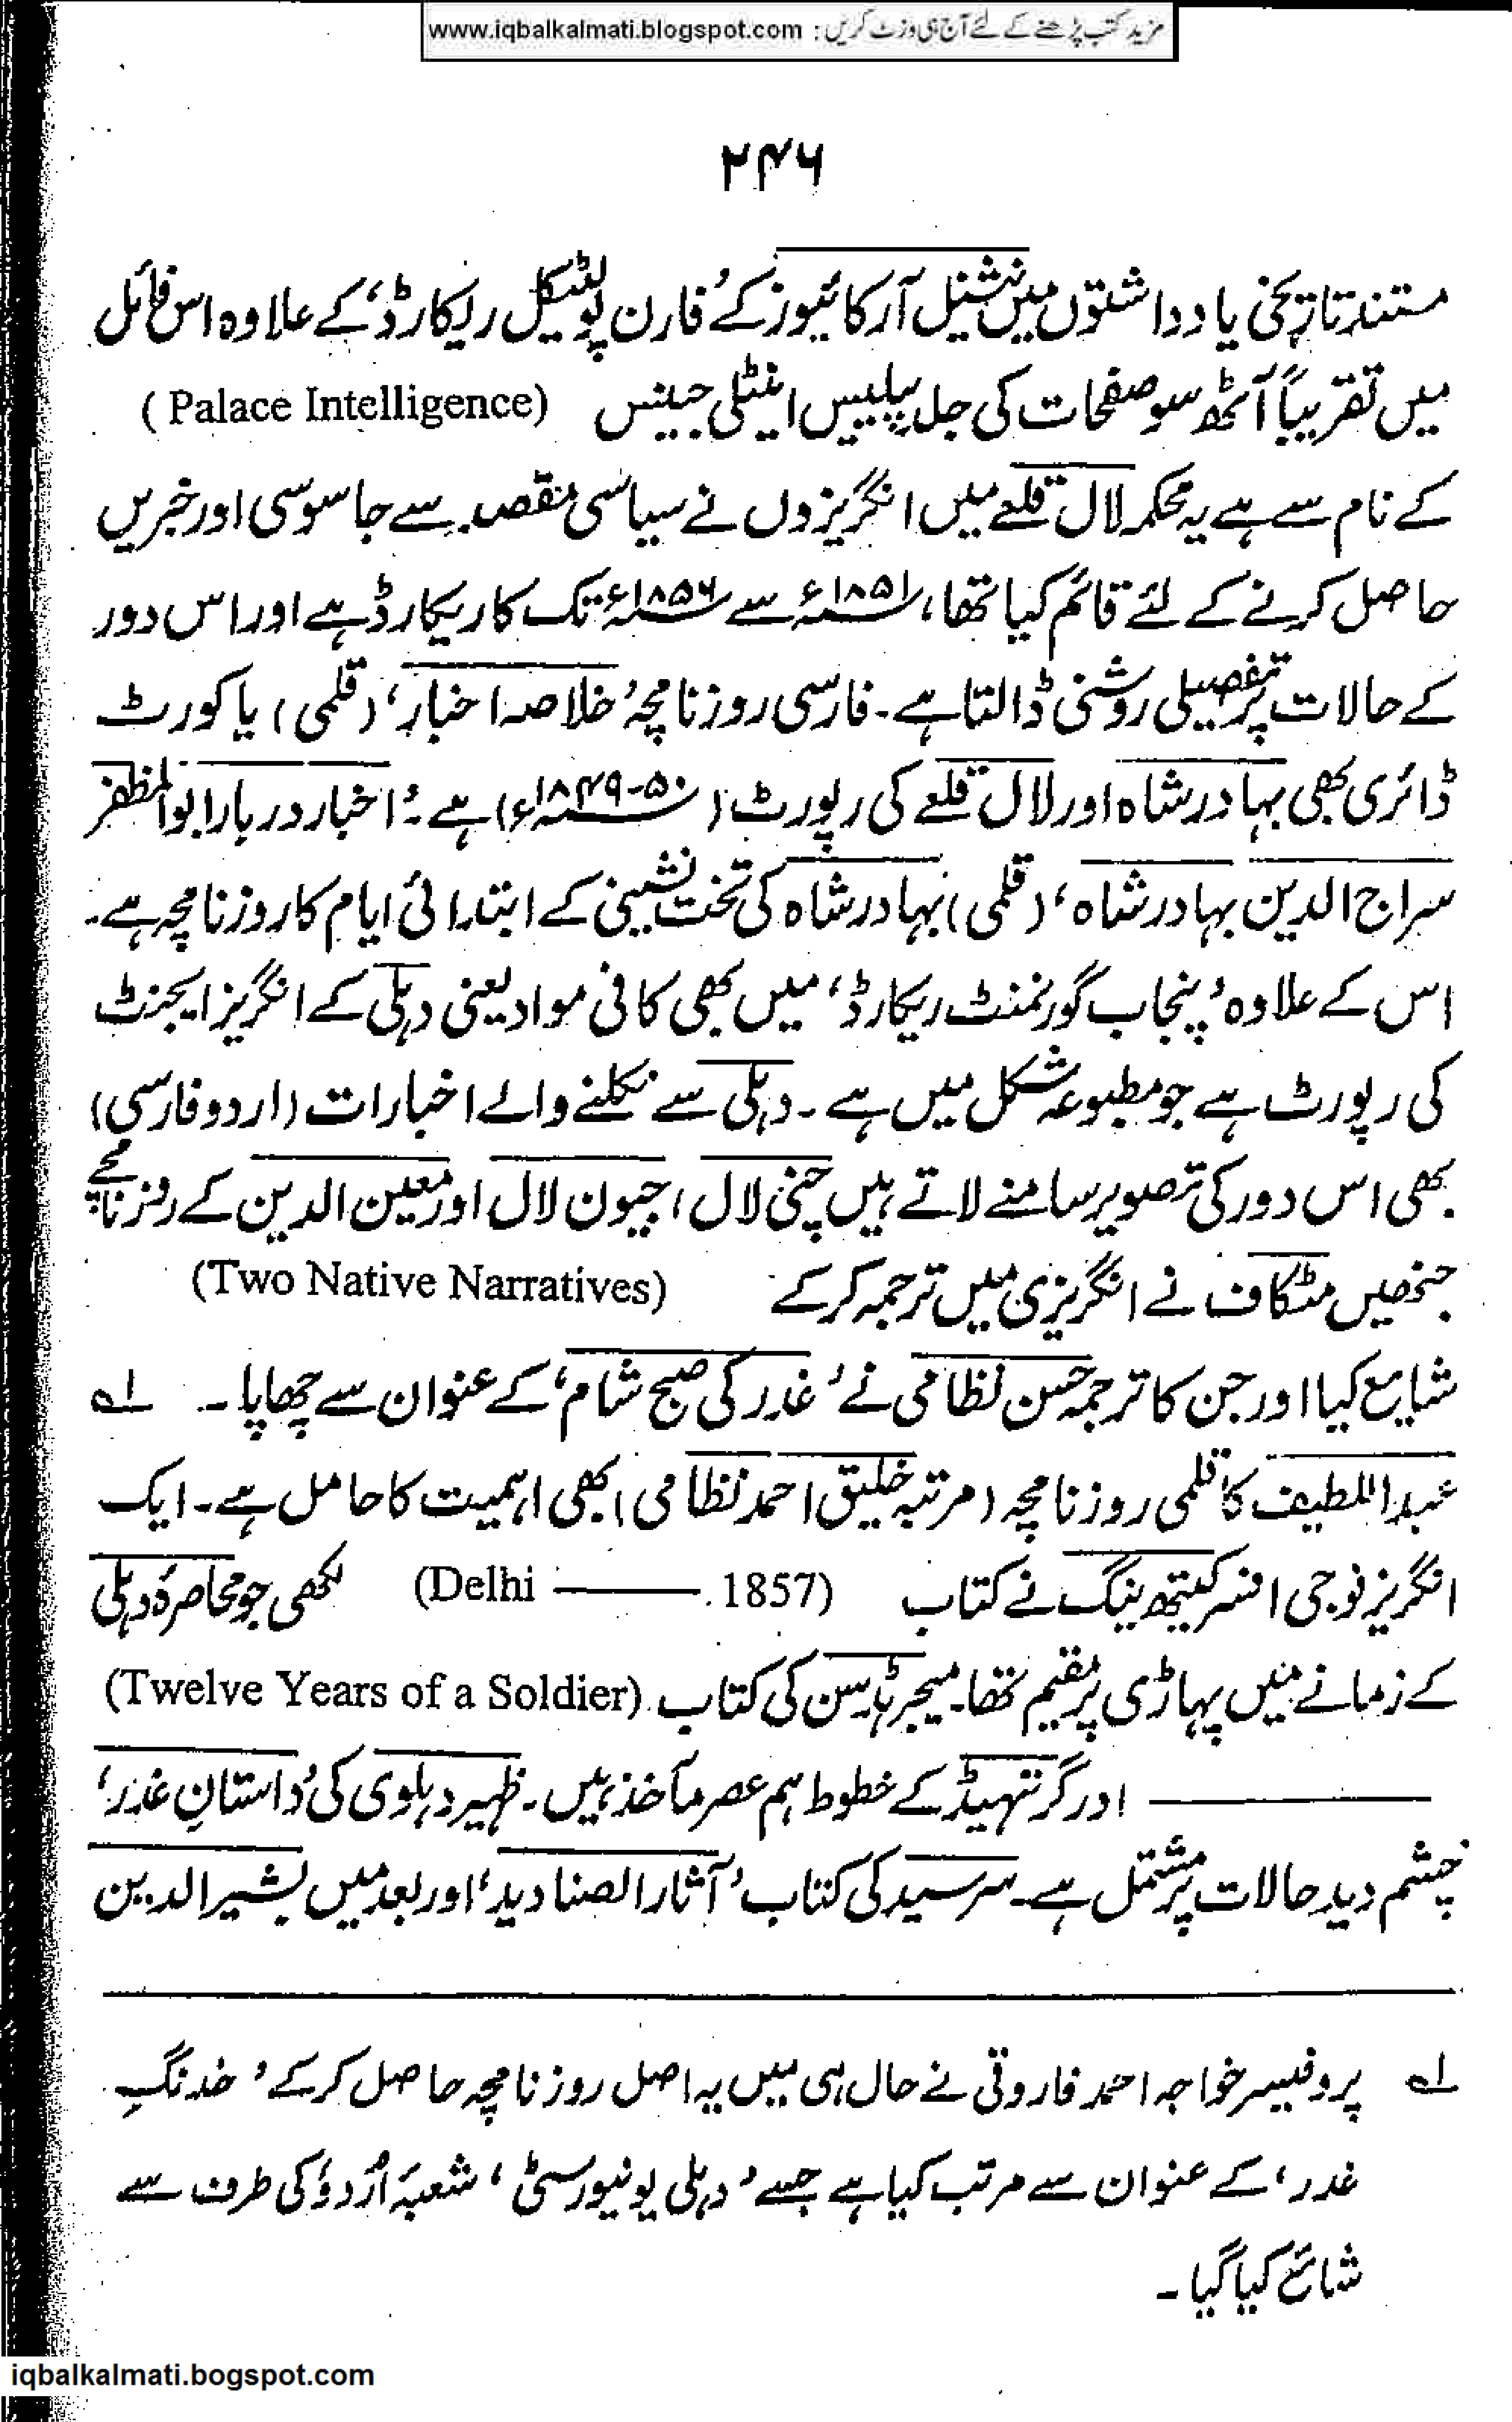 مزید کتب پڑھنے کے لئے آج ہی وزٹ کریں : www.iqbalkalmati.blogspot.com
۲۴۶
مستند تاریخی یادداشتوں میں نیشنل آرکائیوز کے ’فارن پولٹیکل ریکارڈ‘ کے علاوہ اس فائل
میں تقریباً آٹھ سو صفحات کی جلد پیلیس انٹیلی جینس (Palace Intelligence)
کے نام سے ہے یہ محکمہ لال قلعے میں انگریزوں نے سیاسی مقصد سے جاسوسی اور خبریں
حاصل کرنے کے لئے قائم کیا تھا، ۱۸۵۱ء سے ۱۸۵۶ء تک کا ریکارڈ ہے اور اس دور
کے حالات پر تفصیلی روشنی ڈالتا ہے۔ فارسی روزنامچہ ’خلاصہ اخبار‘ (قلمی) یا کورٹ
ڈائری بھی بہادر شاہ اور لال قلعے کی رپورٹ (۵۰-۱۸۴۹ء) ہے۔ ’اخبار دربار ابوالمظفر
سراج الدین بہادر شاہ‘ (قلمی) بہادر شاہ کی تخت نشینی کے ابتدائی ایام کا روزنامچہ ہے۔
اس کے علاوہ ’پنجاب گورنمنٹ ریکارڈ‘ میں بھی کافی مواد یعنی دہلی کے انگریز ایجنٹ
کی رپورٹ ہے جو مطبوعہ شکل میں ہے۔ دہلی سے نکلنے والے اخبارات (اردو فارسی)
بھی اس دور کی تصویر سامنے لاتے ہیں چنی لال، جیون لال اور معین الدین کے روزنامچے
جنھیں مٹکاف نے انگریزی میں ترجمہ کر کے (Two Native Narratives)
شایع کیا اور جن کا ترجمہ حسن نظامی نے ’غدر کی صبح شام‘ کے عنوان سے چھاپا۔ ۱؎
عبداللطیف کا قلمی روزنامچہ (مرتبہ خلیق احمد نظامی) بھی اہمیت کا حامل ہے۔ ایک
انگریز فوجی افسر کیتھ ینگ نے کتاب (Delhi ——— 1857) لکھی جو محاصرۂ دہلی
کے زمانے میں پہاڑی پر مقیم تھا۔ میجر ہڈسن کی کتاب (Twelve Years of a Soldier)
——— اور گریتھیڈ کے خطوط ہم عصر مآخذ ہیں۔ ظہیر دہلوی کی ’داستانِ غدر‘
چشم دید حالات پر مشتمل ہے۔ سرسید کی کتاب ’آثار الصنادید‘ اور بعد میں بشیر الدین
۱؎ پروفیسر خواجہ احمد فاروقی نے حال ہی میں یہ اصل روزنامچہ حاصل کر کے ’خدنگِ
غدر‘ کے عنوان سے مرتب کیا ہے جسے ’دہلی یونیورسٹی‘ شعبۂ اُردو کی طرف سے
شائع کیا گیا۔
iqbalkalmati.bogspot.com